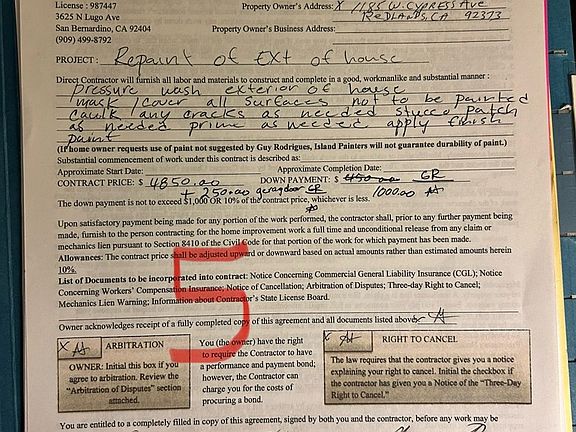 License : 987447
3625 N Lugo Ave
San Bernardino, CA 92404
(909) 499-8792
Property Owner's Address: X 1185 W. CYPRESS Ave
REDLANDS, CA 92373
Property Owner's Business Address:
PROJECT : Repaint of EXT of house
Direct Contractor will furnish all labor and materials to construct and complete in a good, workmanlike and substantial manner :
Pressure wash exterior of house
mask / cover all surfaces not to be painted
caulk any cracks as needed stucco patch
as needed prime as needed apply finish
paint
(If home owner requests use of paint not suggested by Guy Rodrigues, Island Painters will not guarantee durability of paint.)
Substantial commencement of work under this contract is described as:
Approximate Start Date: Approximate Completion Date:
CONTRACT PRICE: $ 4850.00 DOWN PAYMENT: $ 450.00 GR
+ 250.00 GR 1000.00
The down payment is not to exceed $1,000 OR 10% of the contract price, whichever is less.
Upon satisfactory payment being made for any portion of the work performed, the contractor shall, prior to any further payment being
made, furnish to the person contracting for the home improvement work a full time and unconditional release from any claim or
mechanics lien pursuant to Section 8410 of the Civil Code for that portion of the work for which payment has been made.
Allowances: The contract price shall be adjusted upward or downward based on actual amounts rather than estimated amounts herein
10%.
List of Documents to be incorporated into contract: Notice Concerning Commercial General Liability Insurance (CGL); Notice
Concerning Workers' Compensation Insurance; Notice of Cancellation; Arbitration of Disputes; Three-day Right to Cancel;
Mechanics Lien Warning; Information about Contractor's State License Board.
5
Owner acknowledges receipt of a fully completed copy of this agreement and all documents listed above
X ARBITRATION
OWNER: Initial this box if you
agree to arbitration. Review the
"Arbitration of Disputes" section
attached.
You (the owner) have the right
to require the Contractor to have
a performance and payment bond;
however, the Contractor can
charge you for the costs of
procuring a bond.
X RIGHT TO CANCEL
The law requires that the contractor gives you a notice
explaining your right to cancel. Initial the checkbox if
the contractor has given you a Notice of the "Three-Day
Right to Cancel."
You are entitled to a completely filled in copy of this agreement, signed by both you and the contractor, before any work may be